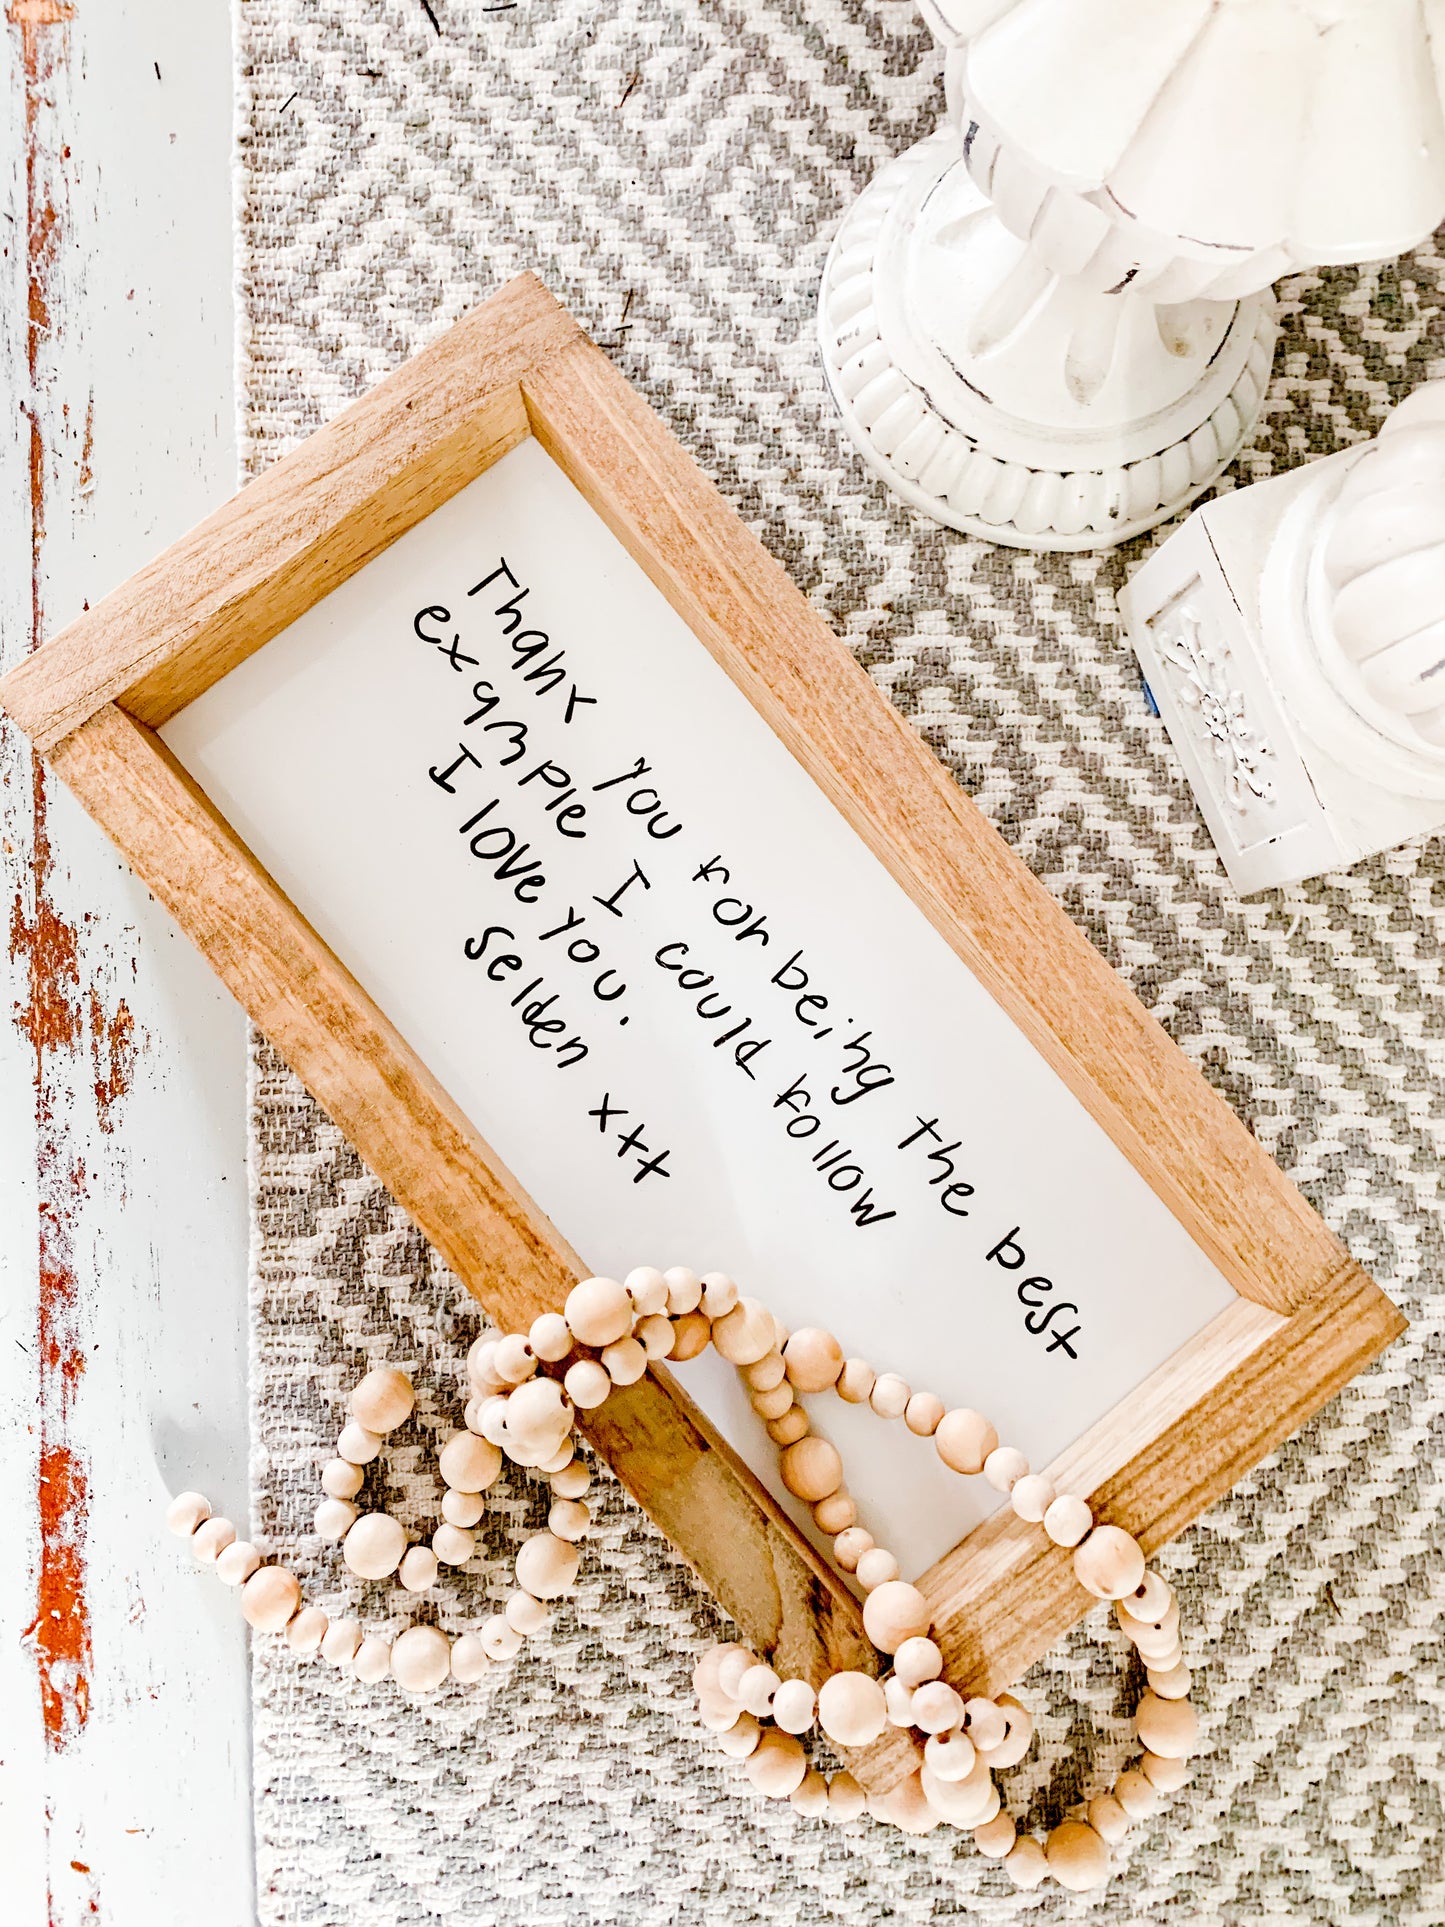 Thank you for being the best
example I could follow
I love you.
Selden xxx